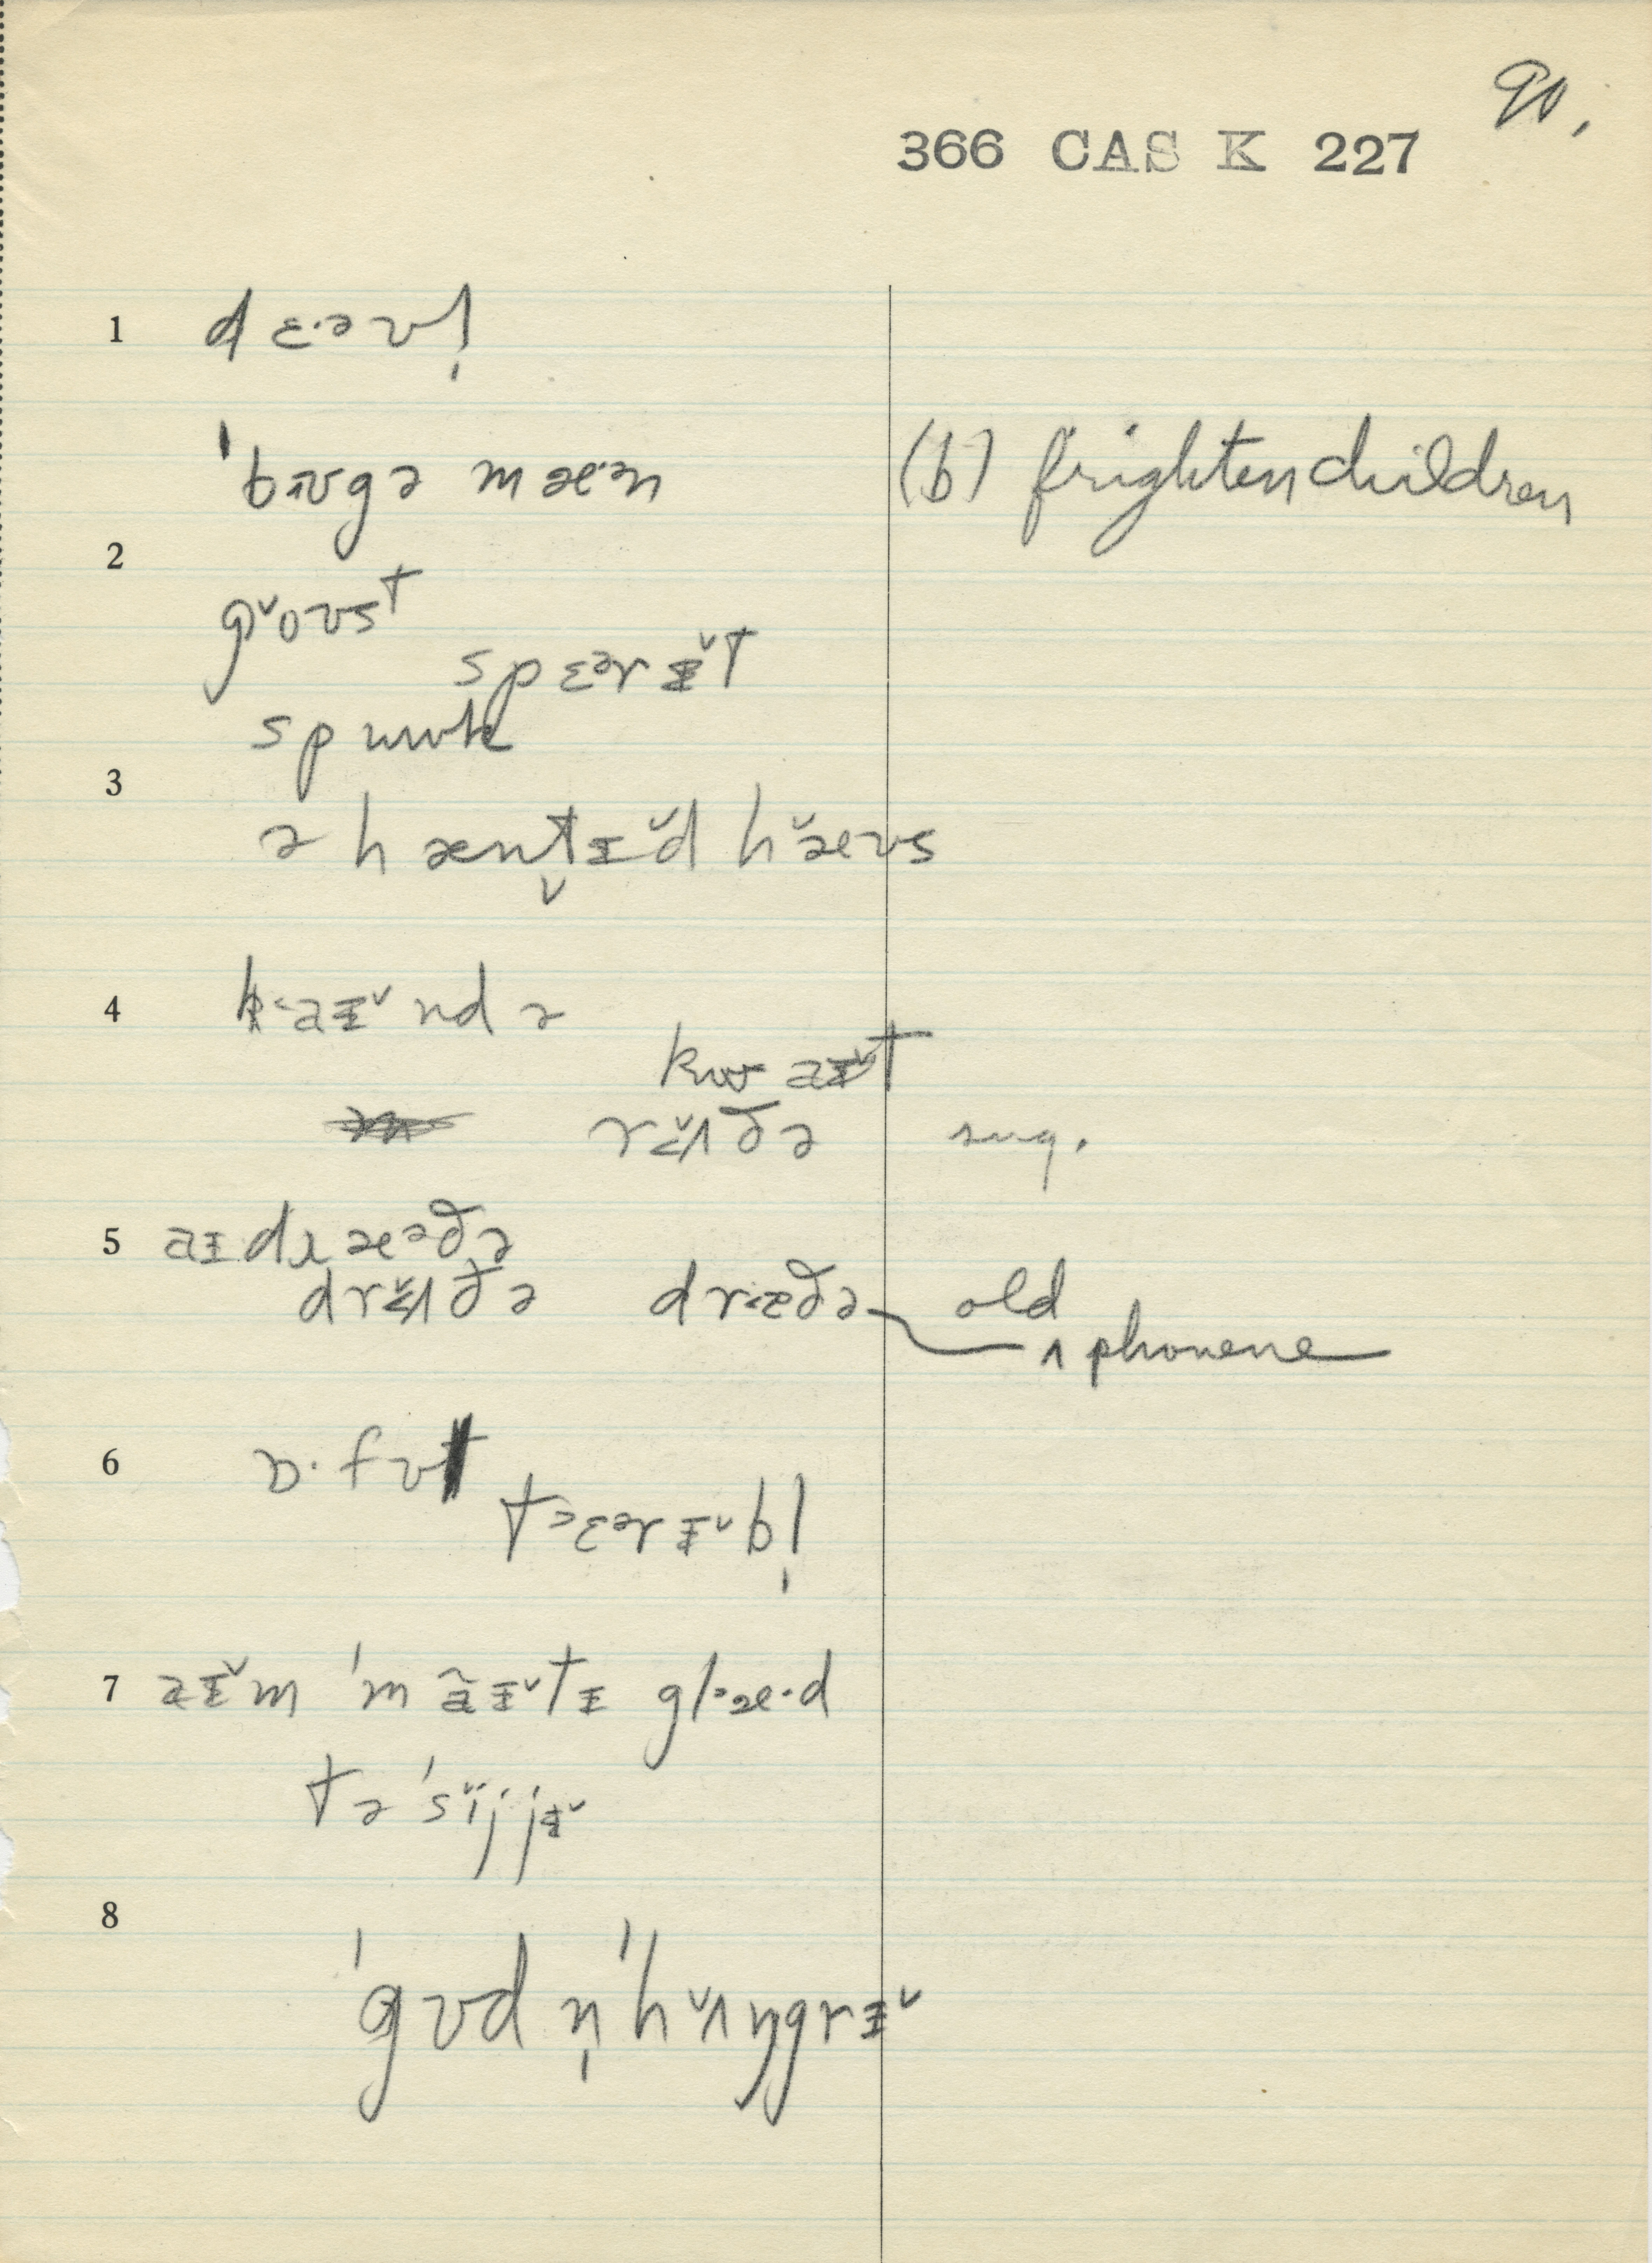 90.
366 CAS K 227
1 dɛ·əvl̩
ˈbʊgə mæ·ən (b) frighten children
2
gˇoʊst
spɛərɪˇt
spuuk
3
ə hæntɪˇd hˇæʊs
4 k‹aɪˇndə
kwaɪˇt
rʌˇðə sug.
5 aɪdræəðə
drʌˇðə dræðə old
ʌ phoneme
6 ɒ·fʊl
t>ɛərɪˇbl̩
7 aɪˇm ˈmãɪˇtɪ gl>æ·d
tə ˈsiˇjjɪˇ
8
ˈgʊd n̩ ˈhˇʌŋgrɪˇ